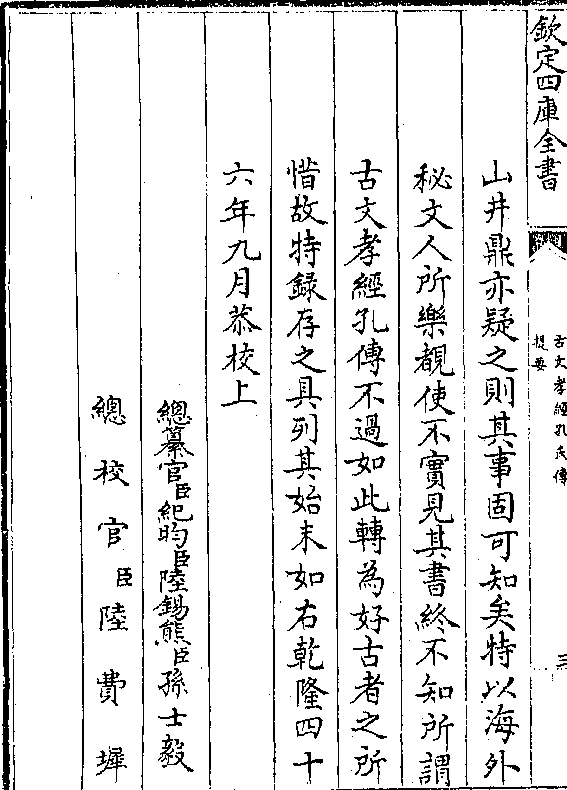 欽定四庫全書
古文孝經孔氏傳
提要
三
山井鼎亦疑之則其事固可知矣特以海外
秘文人所樂覩使不實見其書終不知所謂
古文孝經孔傳不過如此轉為好古者之所
惜故特録存之具列其始末如右乾隆四十
六年九月恭校上
總纂官臣紀昀臣陸錫熊臣孫士毅
總校官臣陸費墀